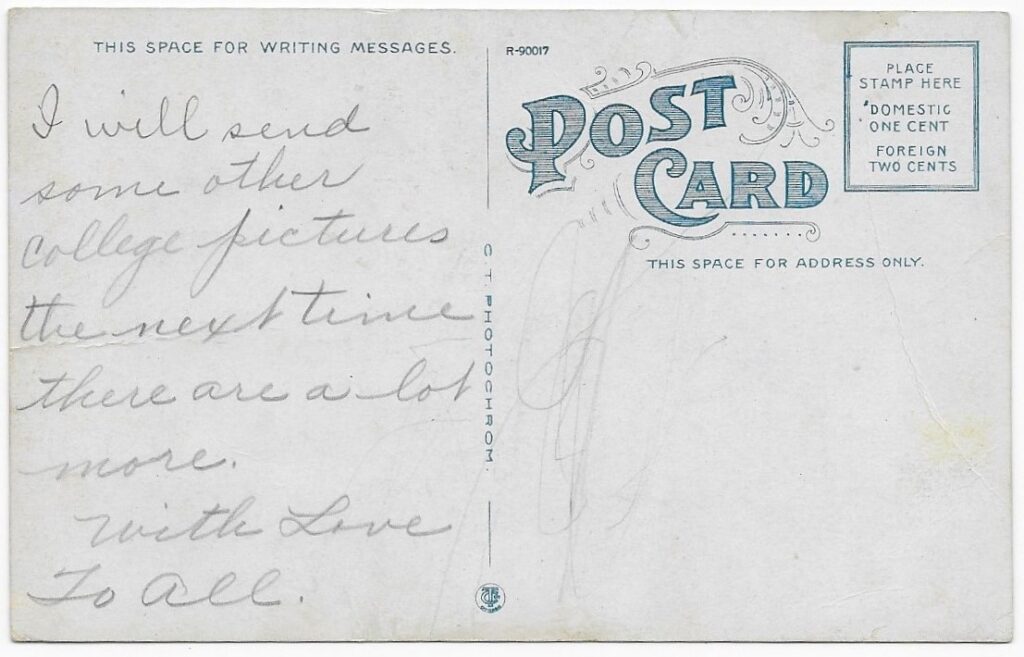 THIS SPACE FOR WRITING MESSAGES.
I will send
some other
college pictures
the next time
there are a lot
more.
With Love
To All.
C. T. PHOTOCHROM.
R-90017
POST
CARD
PLACE
STAMP HERE
DOMESTIC
ONE CENT
FOREIGN
TWO CENTS
THIS SPACE FOR ADDRESS ONLY.